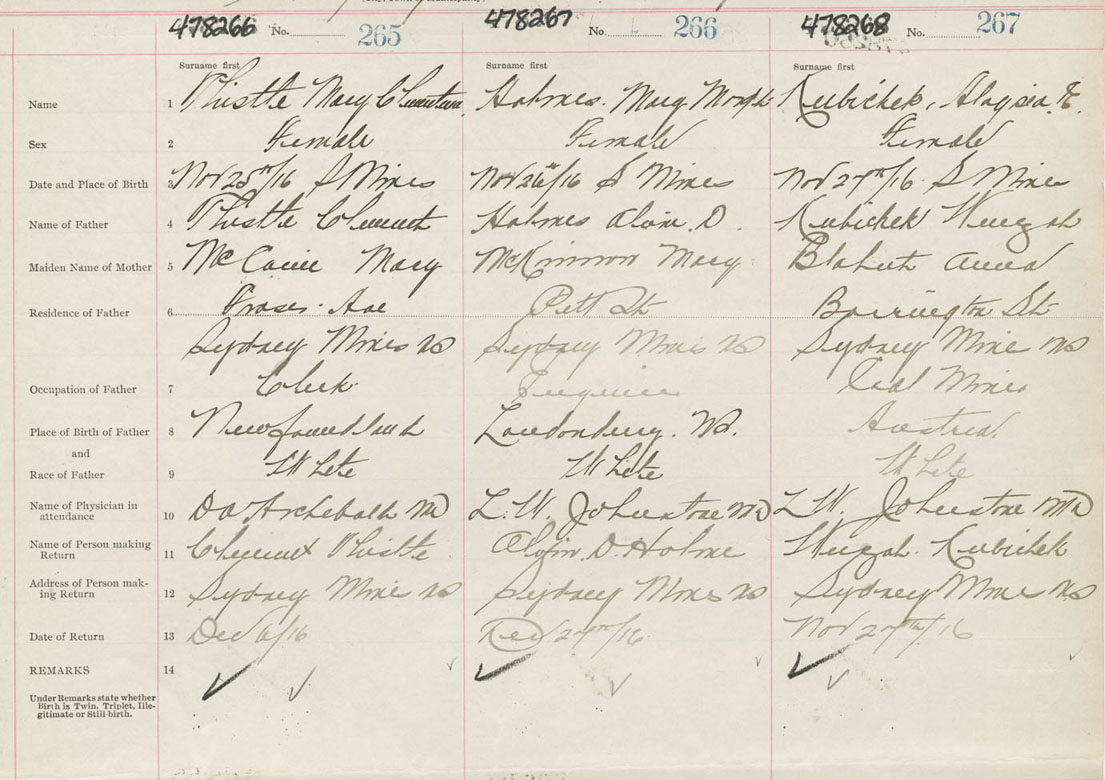 478266 No. 265 478267 No. 266 478268 No. 267
Surname first Surname first Surname first
Name 1 Thistle Mary Holmes. Mary Kubichek, Aloysia
Sex 2 Female Female Female
Date and Place of Birth 3 Nov 25th/16 S Mines Nov 26th/16 S Mines Nov 27th/16 S Mines
Name of Father 4 Thistle Clement Holmes Alvin. D. Kubichek
Maiden Name of Mother 5 Mary McKinnon Mary Anna
Residence of Father 6 Fraser Ave Pitt St Barrington St
Sydney Mines NS Sydney Mines NS Sydney Mine NS
Occupation of Father 7 Clerk Coal Miner
Place of Birth of Father 8 Newfoundland Londonderry. NS. Austria.
and
Race of Father 9 White White White
Name of Physician in
attendance 10 Archibald MD L. W. Johnstone MD L. W. Johnstone MD
Name of Person making
Return 11 Clement Thistle D. Holme Kubichek
Address of Person mak-
ing Return 12 Sydney Mines NS Sydney Mines NS Sydney Mine NS
Date of Return 13 Dec 6/16 27th/16 Nov 27th/16
REMARKS 14
Under Remarks state whether
Birth is Twin, Triplet, Ille-
gitimate or Still-birth.